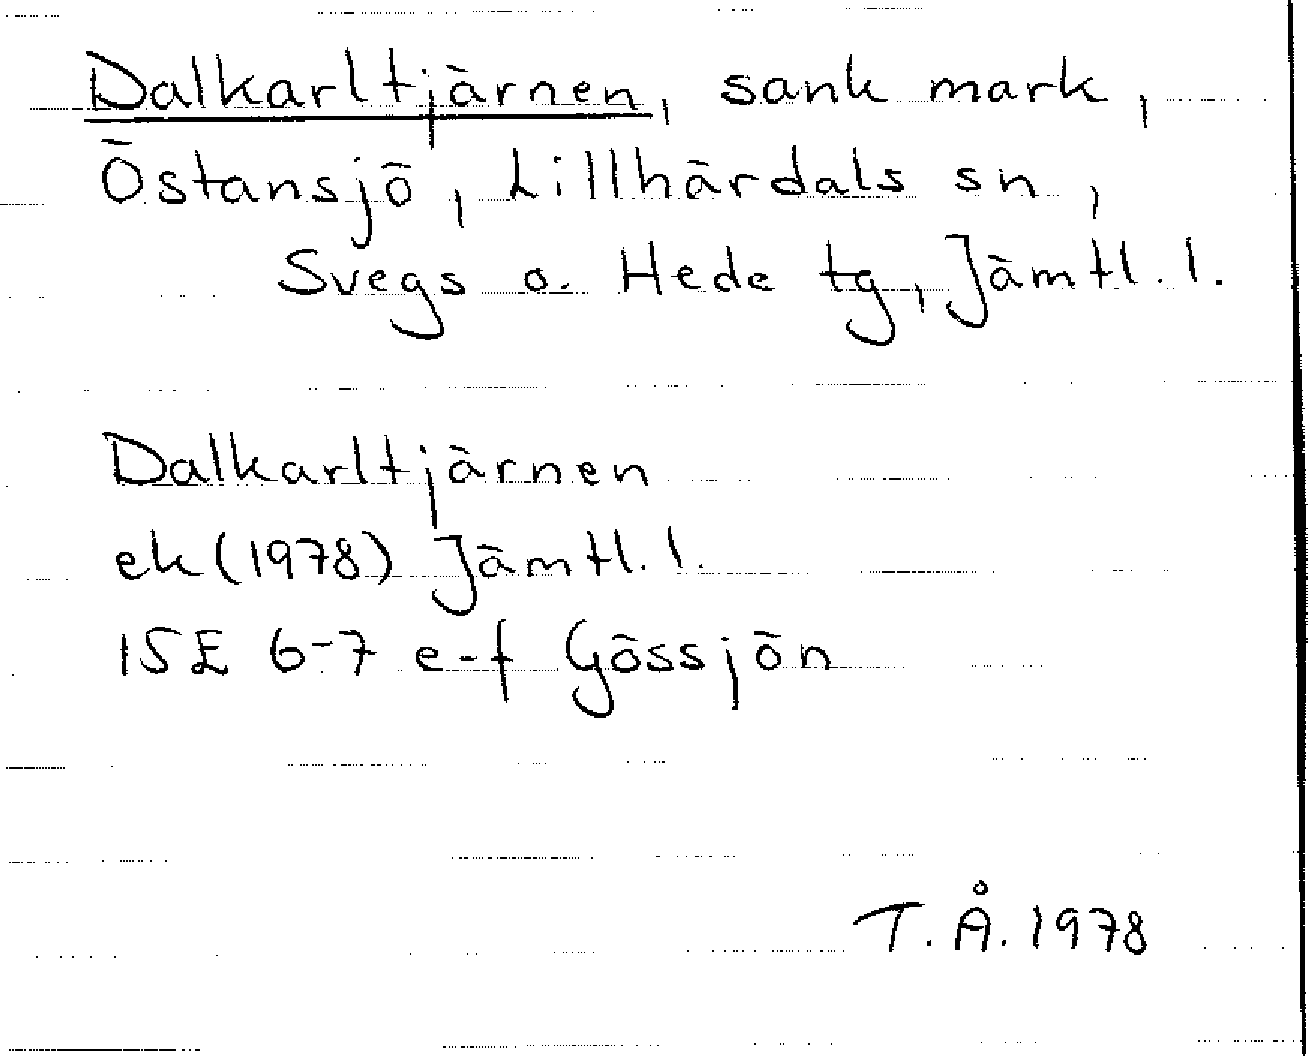 Dalkarltjärnen, sank mark,
Östansjö, Lillhärdals sn,
Svegs o. Hede tg, Jämtl. l.
Dalkarltjärnen
ek (1978) Jämtl. l.
15E 6-7 e-f Gössjön
T. Å. 1978